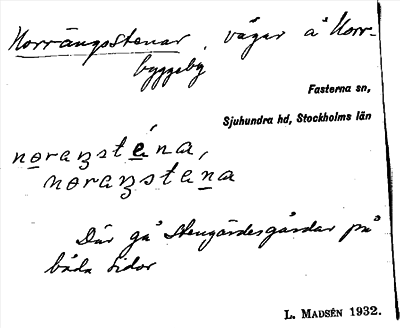 Norrängsstenar, vägar å Norr-
byggeby
Fasterna sn,
Sjuhundra hd, Stockholms län
noraŋsténa,
noraŋstena
Där gå Stengärdesgårdar på
båda sidor
L. MADSÉN 1932.